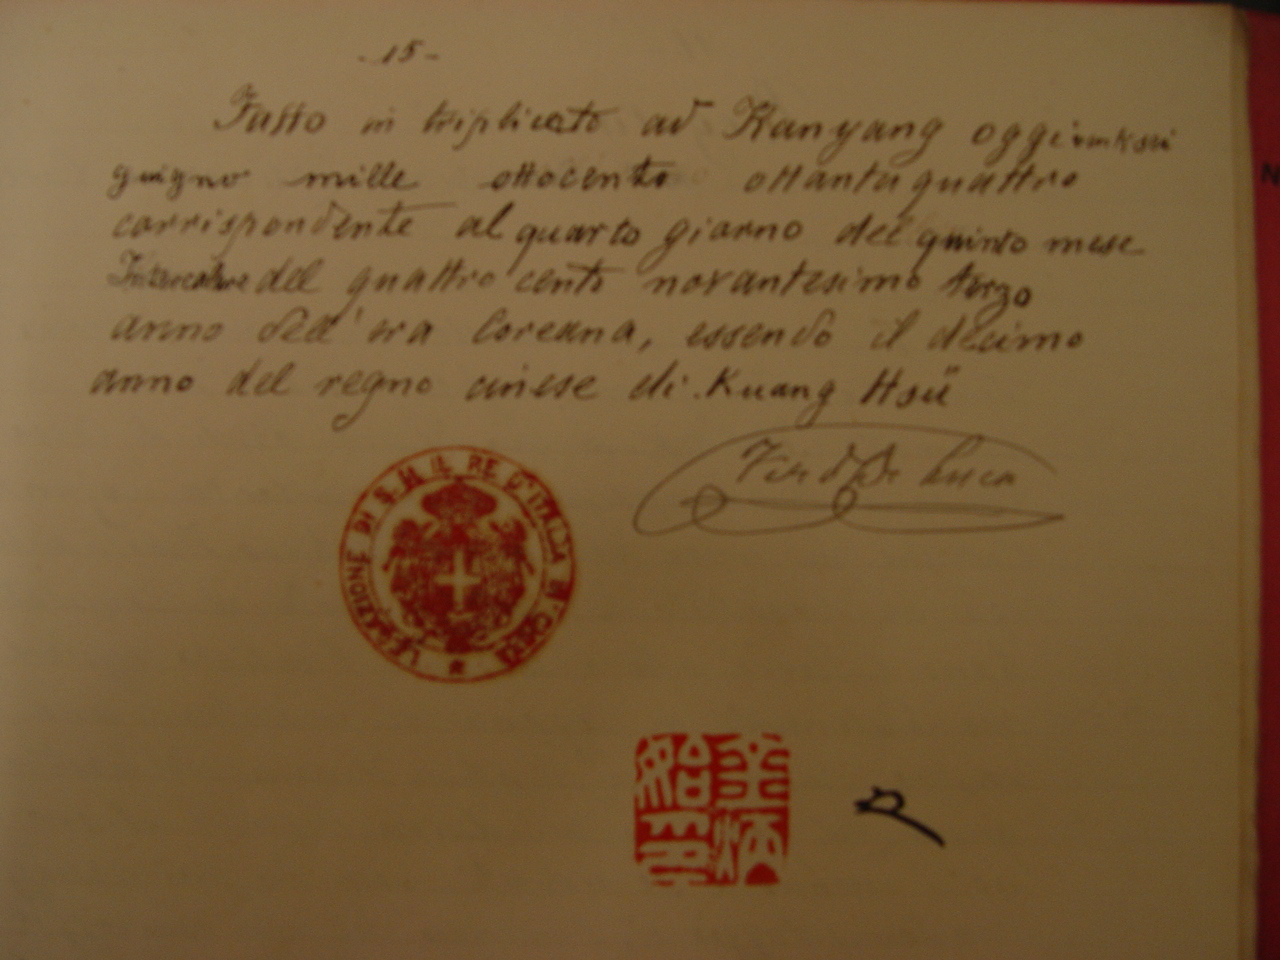 - 15 -
Fatto in triplicato ad Hanyang oggi ventisei
giugno mille ottocento ottantaquattro
corrispondente al quarto giorno del quinto mese
Intercalare del quattro cento novantesimo terzo
anno dell' era Coreana, essendo il decimo
anno del regno cinese di Kuang Hsü
Ferd. De Luca
LEGAZIONE DI S. M. IL RE D'ITALIA IN CINA
金炳
始印